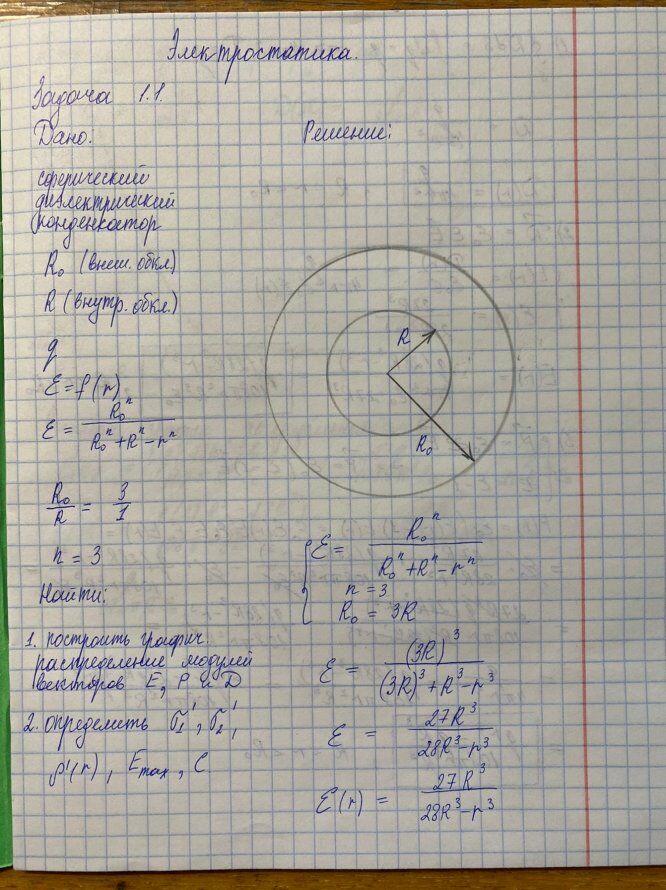 Электростатика.
Задача 1.1.
Дано:
Решение:
сферический
диэлектрический
конденсатор
R₀ (внеш. обкл.)
R (внутр. обкл.)
q
ε = f(r)
ε = R₀ⁿ / (R₀ⁿ + Rⁿ − rⁿ)
R₀/R = 3/1
n = 3
Найти:
1. построить графич.
распределение модулей
векторов E, P и D
2. определить σ₁', σ₂',
ρ'(r), Emax, C
R
R₀
ε = R₀ⁿ / (R₀ⁿ + Rⁿ − rⁿ)
n = 3
R₀ = 3R
ε = (3R)³ / ((3R)³ + R³ − r³)
ε = 27R³ / (28R³ − r³)
ε(r) = 27R³ / (28R³ − r³)